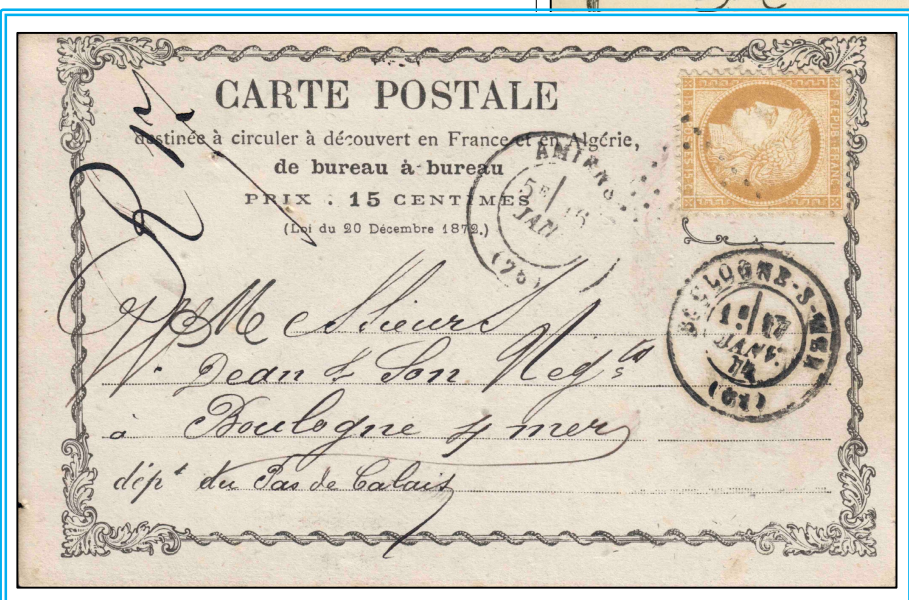 CARTE POSTALE
destinée à circuler à découvert en France et en Algérie,
de bureau à bureau
PRIX : 15 CENTIMES
(Loi du 20 Décembre 1872.)
AMIENS
5E 16
JAN
BOULOGNE-S-MER
1E 17
JANV.
74
(61)
Messieurs
Dean & Son Negts
à Boulogne s/ mer
dépt du Pas de Calais